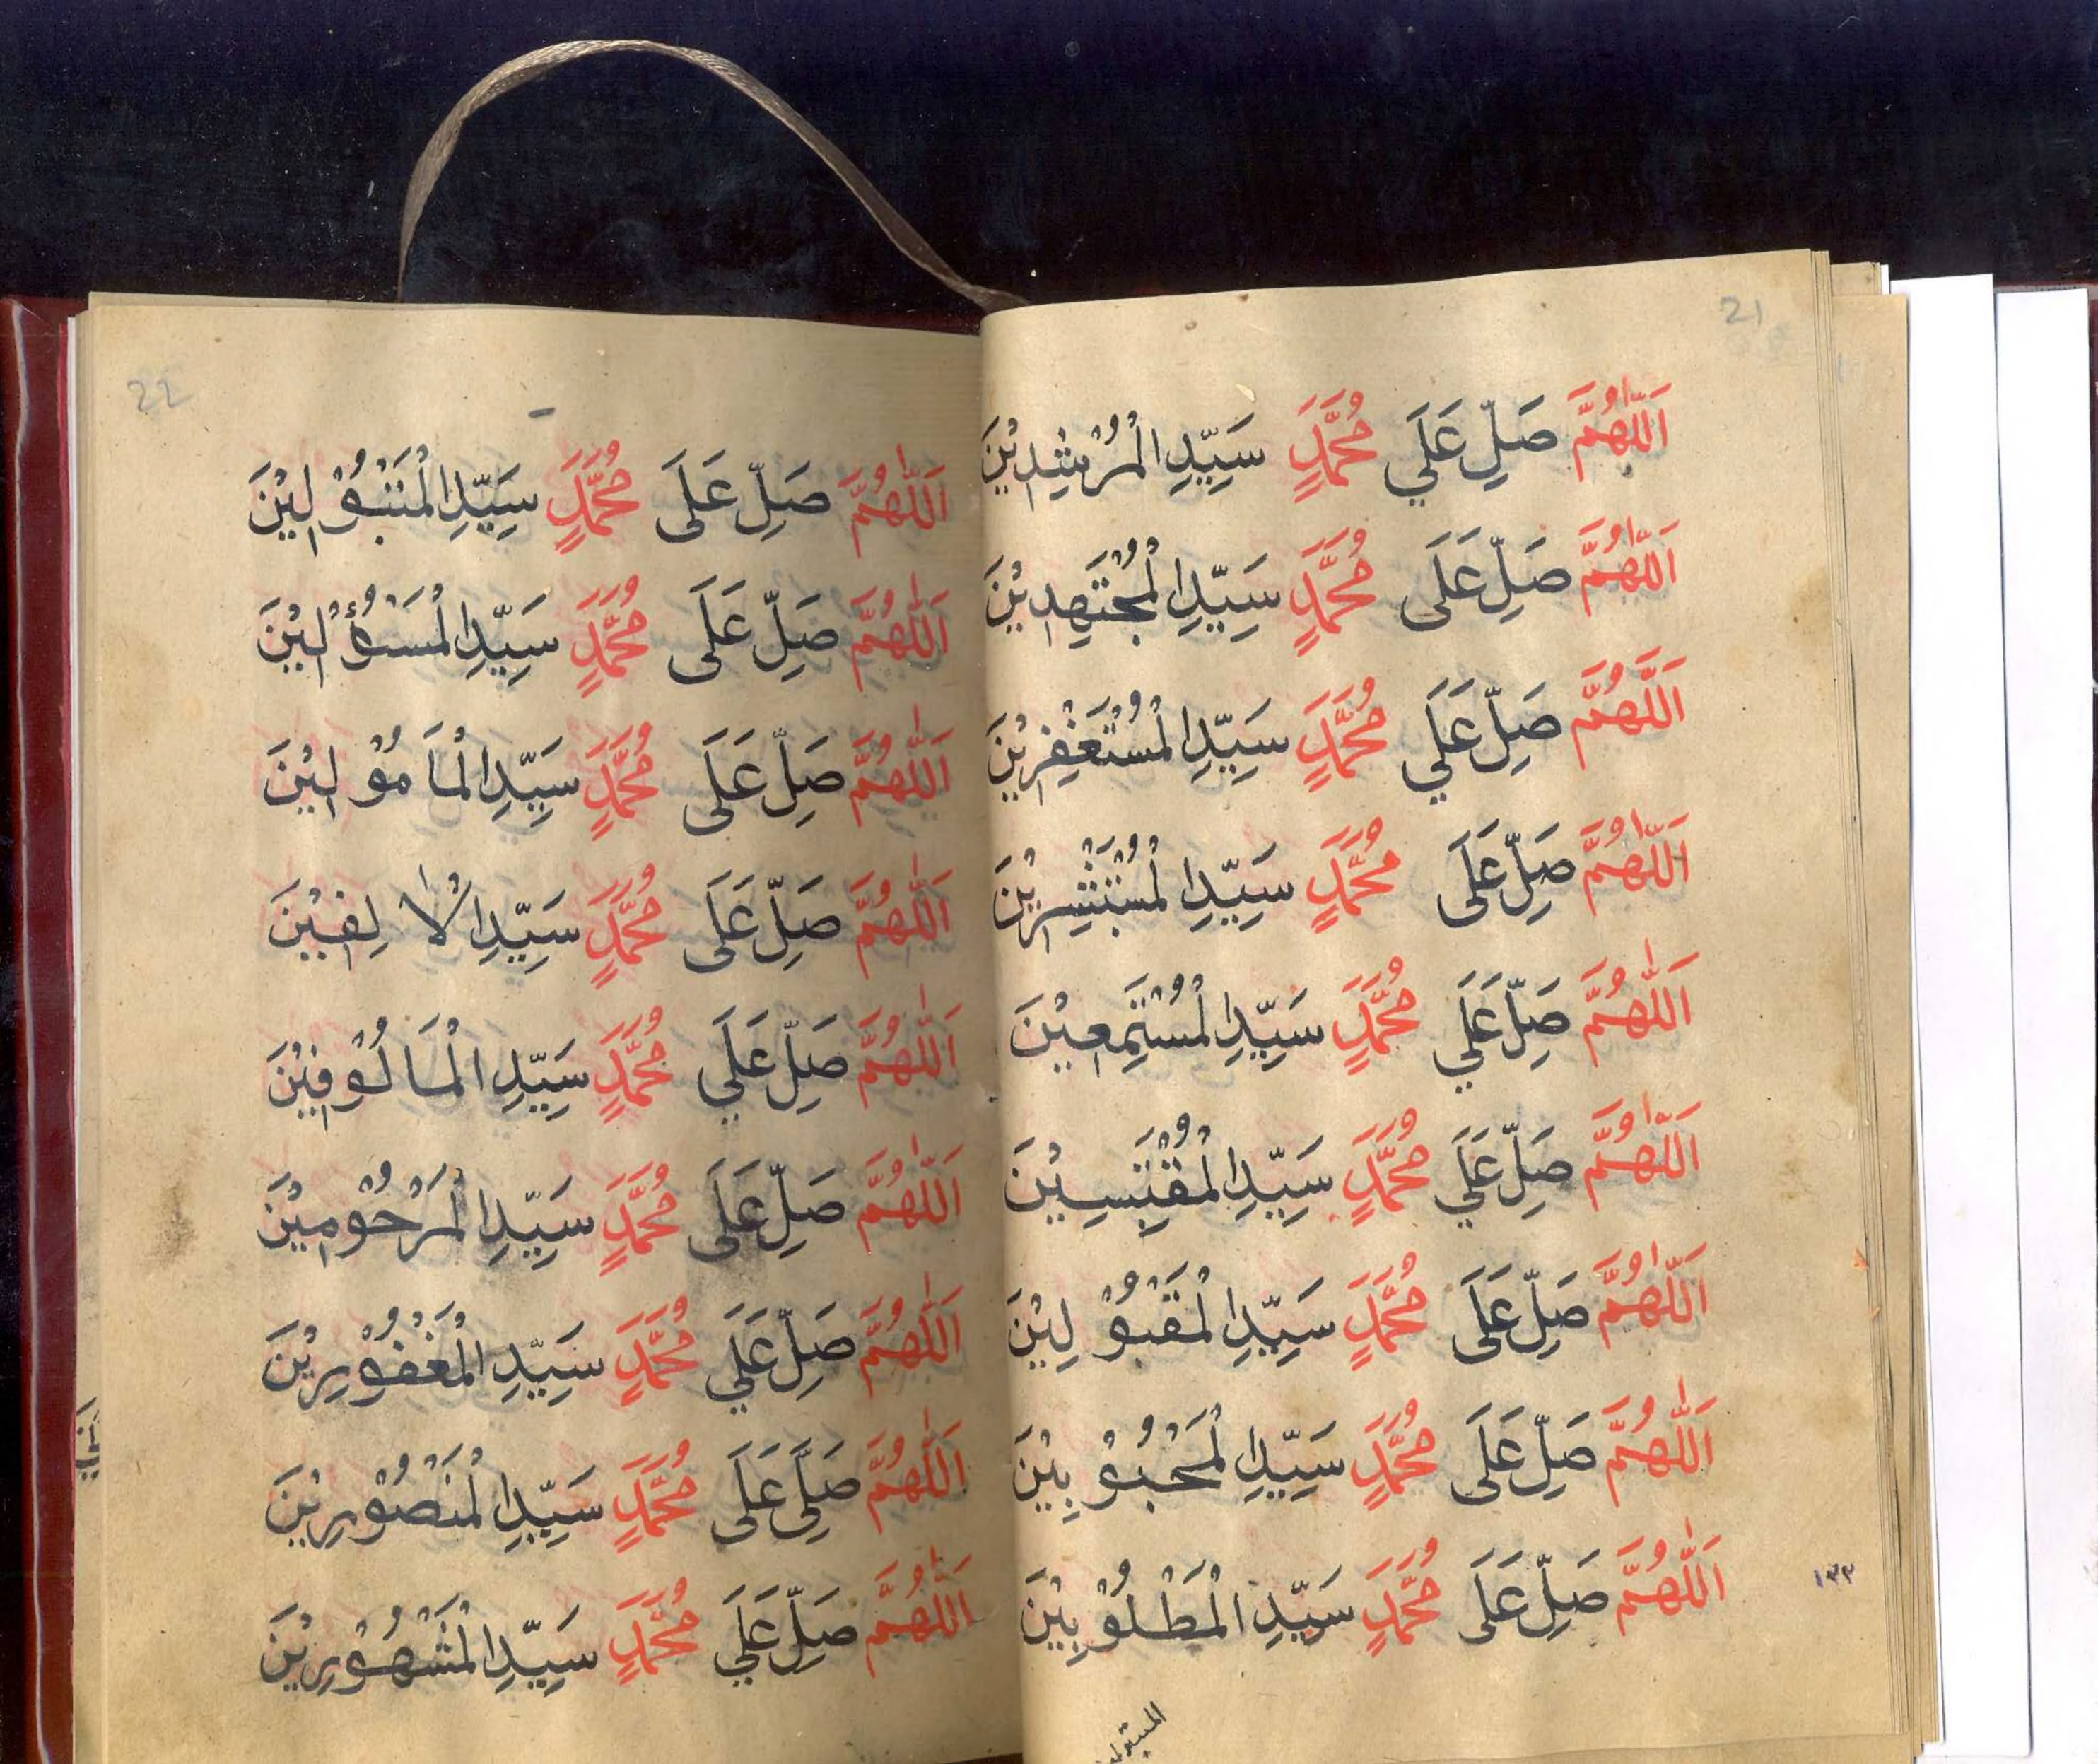 21
اَللّٰهُمَّ صَلِّ عَلَي مُحَمَّدٍ سَيِّدِ الْمُرْشِدِيْنَ
اَللّٰهُمَّ صَلِّ عَلَى مُحَمَّدٍ سَيِّدِ الْمُجْتَهِدِيْنَ
اَللّٰهُمَّ صَلِّ عَلَي مُحَمَّدٍ سَيِّدِ الْمُسْتَغْفِرِيْنَ
اَللّٰهُمَّ صَلِّ عَلَى مُحَمَّدٍ سَيِّدِ الْمُسْتَبْشِرِيْنَ
اَللّٰهُمَّ صَلِّ عَلَي مُحَمَّدٍ سَيِّدِ الْمُسْتَمِعِيْنَ
اَللّٰهُمَّ صَلِّ عَلَي مُحَمَّدٍ سَيِّدِ الْمُقْتَبِسِيْنَ
اَللّٰهُمَّ صَلِّ عَلَى مُحَمَّدٍ سَيِّدِ الْمَقْبُوْلِيْنَ
اَللّٰهُمَّ صَلِّ عَلَى مُحَمَّدٍ سَيِّدِ الْمَحْبُوْبِيْنَ
اَللّٰهُمَّ صَلِّ عَلَى مُحَمَّدٍ سَيِّدِ الْمَطْلُوْبِيْنَ
١٣٣
22
اَللّٰهُمَّ صَلِّ عَلَى مُحَمَّدٍ سَيِّدِ الْمَنْبُوْلِيْنَ
اَللّٰهُمَّ صَلِّ عَلَى مُحَمَّدٍ سَيِّدِ الْمَسْؤُلِيْنَ
اَللّٰهُمَّ صَلِّ عَلَى مُحَمَّدٍ سَيِّدِ الْمَامُوْلِيْنَ
اَللّٰهُمَّ صَلِّ عَلَى مُحَمَّدٍ سَيِّدِ الْاٰلِفِيْنَ
اَللّٰهُمَّ صَلِّ عَلَي مُحَمَّدٍ سَيِّدِ الْمَالُوْفِيْنَ
اَللّٰهُمَّ صَلِّ عَلَى مُحَمَّدٍ سَيِّدِ الْمَرْحُوْمِيْنَ
اَللّٰهُمَّ صَلِّ عَلَي مُحَمَّدٍ سَيِّدِ الْمَغْفُوْرِيْنَ
اَللّٰهُمَّ صَلِّى عَلَى مُحَمَّدٍ سَيِّدِ الْمَنْصُوْرِيْنَ
اَللّٰهُمَّ صَلِّ عَلَي مُحَمَّدٍ سَيِّدِ الْمَشْهُوْرِيْنَ